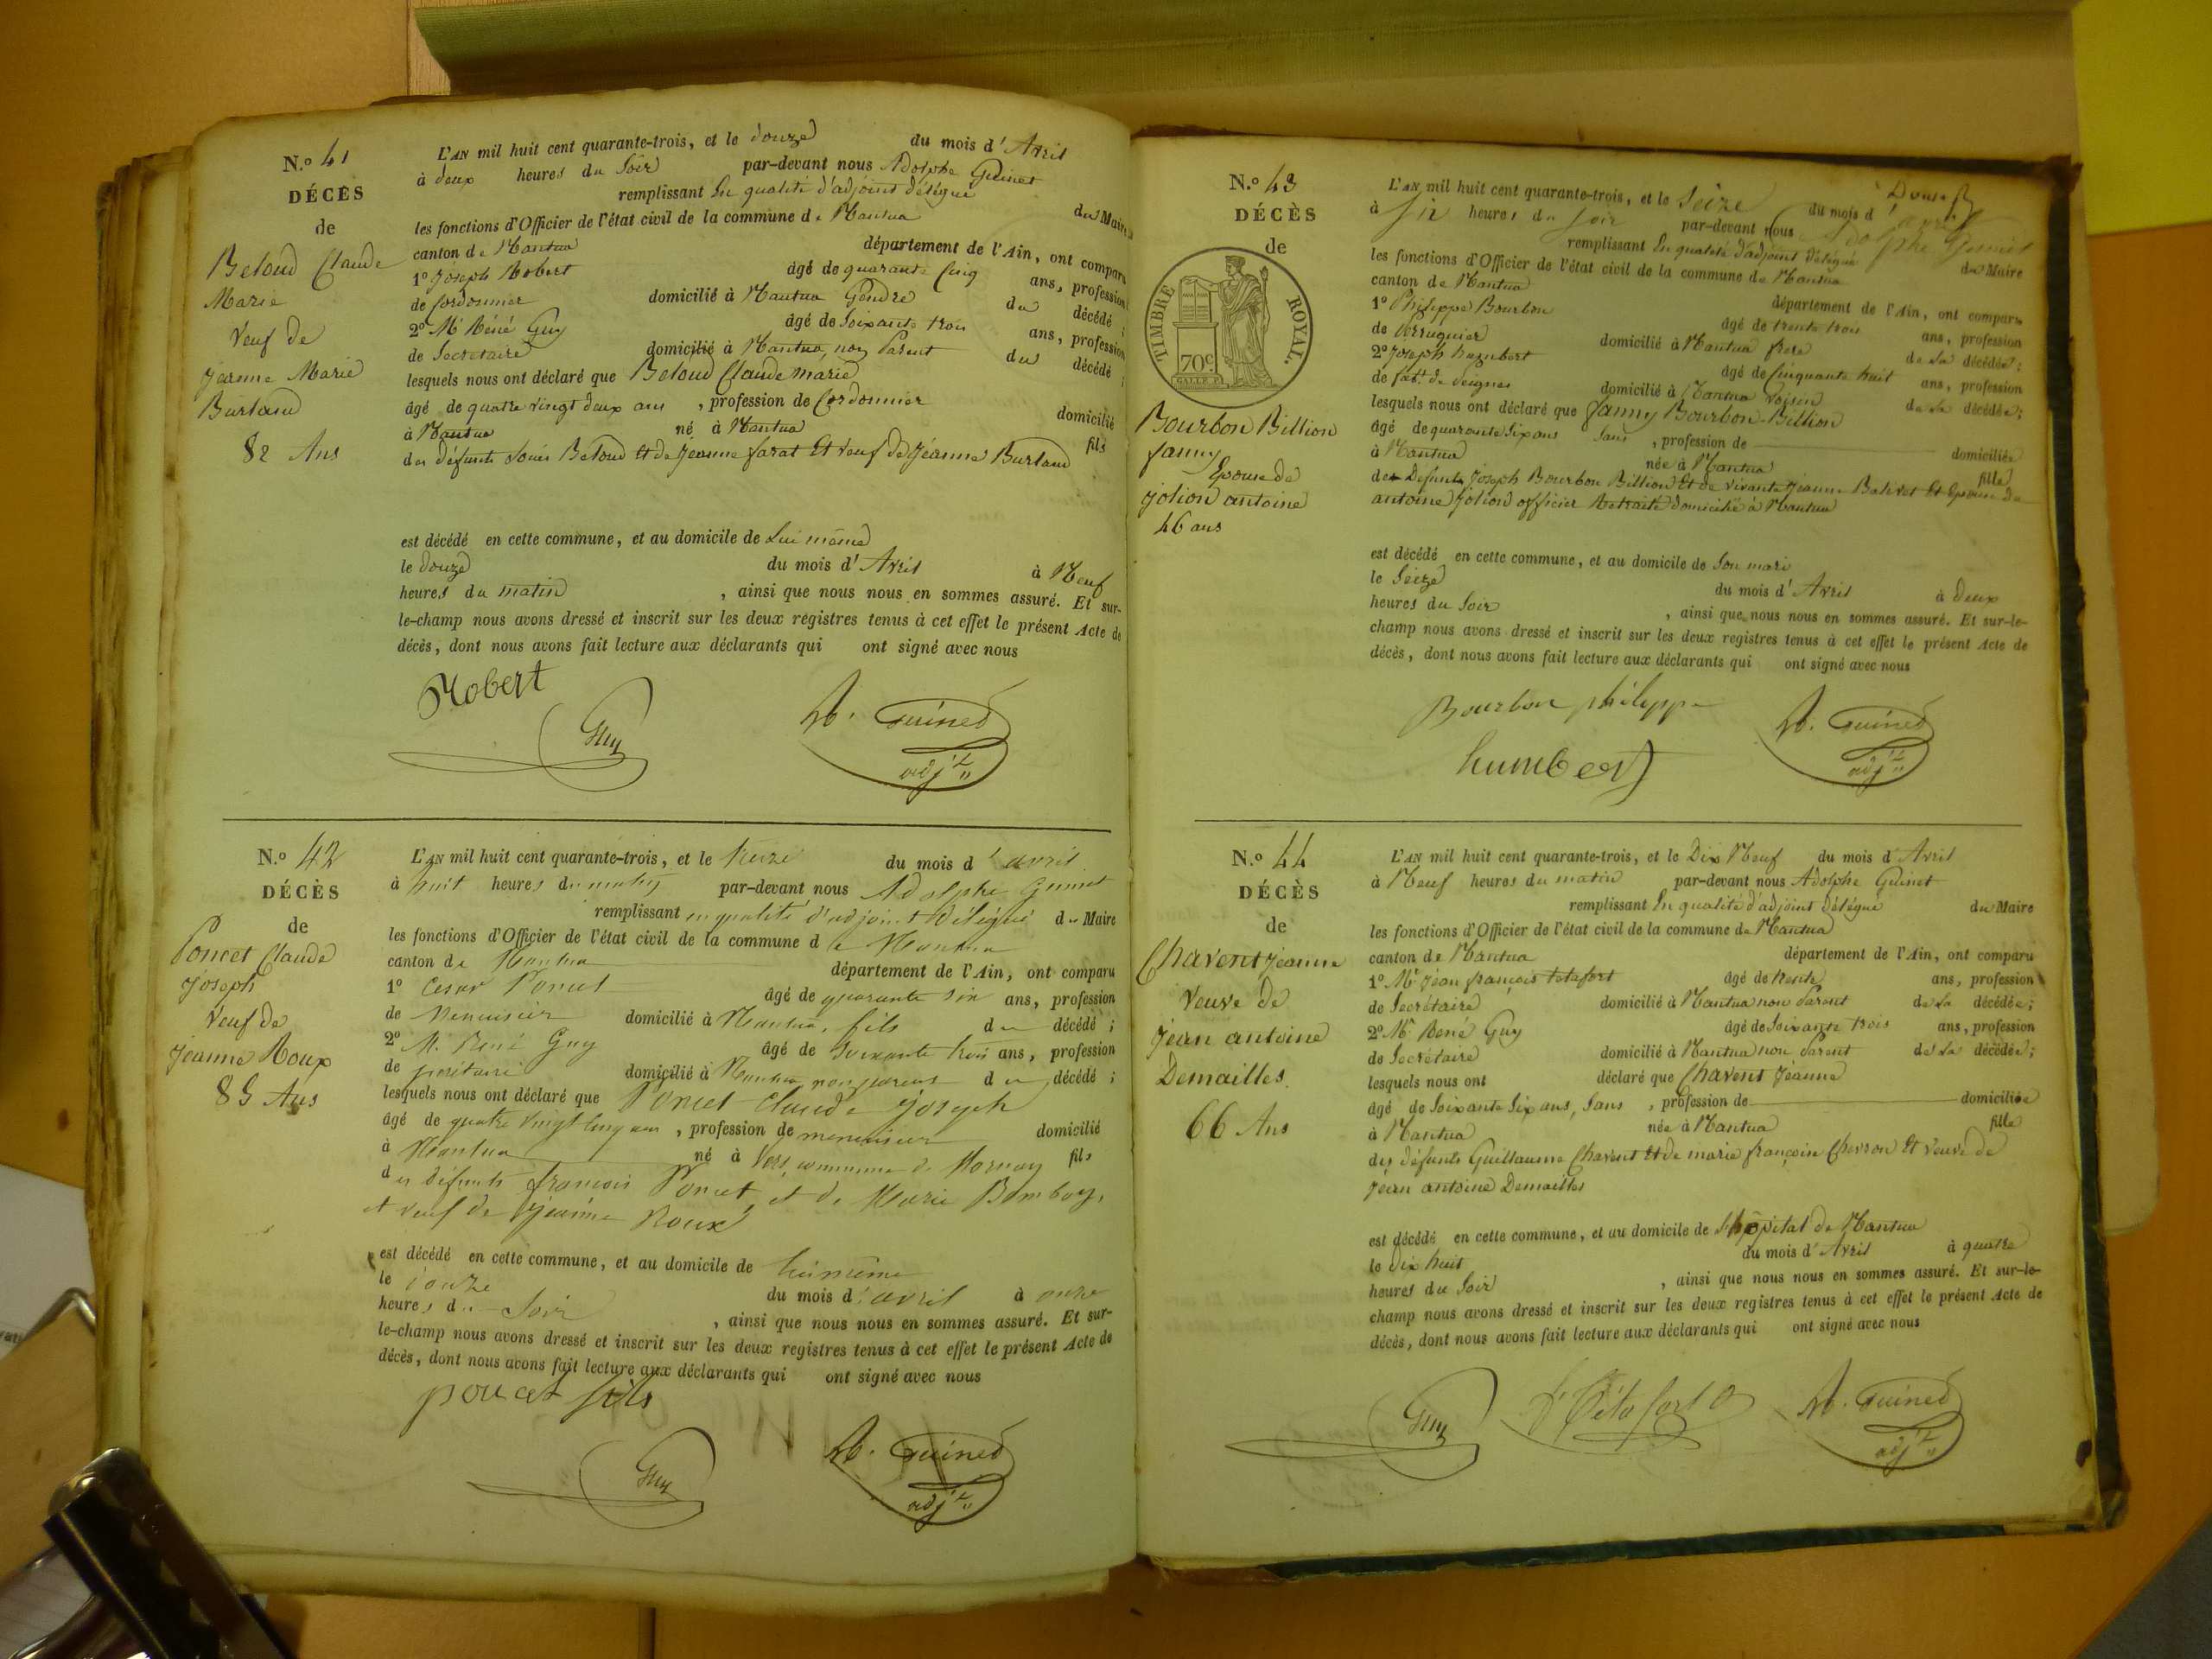 N.o 41
DÉCÈS
de
Beloud Claude
Marie
Veuf de
Jeanne Marie
Burtaud
82 Ans
L'AN mil huit cent quarante-trois, et le douze du mois d'Avril
à deux heures du Soir par-devant nous Adolphe Guinet
remplissant En qualité d'adjoint délégué du Maire
les fonctions d'Officier de l'état civil de la commune de Nantua
canton de Nantua département de l'Ain, ont comparu
1º Joseph Robert âgé de quarante Cinq ans, profession
de Cordonnier domicilié à Nantua Gendre du décédé ;
2º Mr Réné Guy âgé de Soixante trois ans, profession
de Secretaire domicilié à Nantua, non Parent du décédé ;
lesquels nous ont déclaré que Beloud Claude Marie
âgé de quatre vingt deux ans , profession de Cordonnier domicilié
à Nantua né à Nantua fils
des défunts Louis Beloud et de Jeanne farat Et Veuf de Jeanne Burtaud
est décédé en cette commune, et au domicile de Lui même
le douze du mois d'Avril à Neuf
heures du matin , ainsi que nous nous en sommes assuré. Et sur-
le-champ nous avons dressé et inscrit sur les deux registres tenus à cet effet le présent Acte de
décès, dont nous avons fait lecture aux déclarants qui ont signé avec nous
Robert
Guy
Ad. Guinet
adjt
N.o 42
DÉCÈS
de
Poncet Claude
Joseph
Veuf de
Jeanne Roux
85 Ans
L'AN mil huit cent quarante-trois, et le treize du mois d'avril
à huit heures du matin par-devant nous Adolphe Guinet
remplissant en qualité d'adjoint délégué du Maire
les fonctions d'Officier de l'état civil de la commune de Nantua
canton de Nantua département de l'Ain, ont comparu
1º César Poncet âgé de quarante six ans, profession
de Menuisier domicilié à Nantua, fils du décédé ;
2º M. René Guy âgé de soixante trois ans, profession
de secrétaire domicilié à Nantua non parent du décédé ;
lesquels nous ont déclaré que Poncet Claude Joseph
âgé de quatre vingt cinq ans , profession de menuisier domicilié
à Nantua né à Vers, commune de Mornay fils
des défunts françois Poncet, et de Marie Bomboy,
et veuf de Jeanne Roux
est décédé en cette commune, et au domicile de lui même
le douze du mois d'avril à onze
heures du Soir , ainsi que nous nous en sommes assuré. Et sur-
le-champ nous avons dressé et inscrit sur les deux registres tenus à cet effet le présent Acte de
décès, dont nous avons fait lecture aux déclarants qui ont signé avec nous
poncet fils
Guy
Ad. Guinet
adjt
N.o 43
DÉCÈS
de
TIMBRE ROYAL.
70c
Bourbon Billion
fanny
Epouse de
Jolion antoine
46 ans
L'AN mil huit cent quarante-trois, et le Seize du mois d'avril
à Six heures du soir par-devant nous Adolphe Guinet
remplissant En qualité d'adjoint délégué du Maire
les fonctions d'Officier de l'état civil de la commune de Nantua
canton de Nantua département de l'Ain, ont comparu
1º Philippe Bourbon âgé de trente trois ans, profession
de Perruquier domicilié à Nantua frere de La décédée ;
2º Joseph humbert âgé de Cinquante huit ans, profession
de fabt. de Peignes domicilié à Nantua Voisin de La décédée ;
lesquels nous ont déclaré que fanny Bourbon-Billion
âgé de quarante Six ans Sans , profession de domiciliée
à Nantua née à Nantua fille
de Defunt Joseph Bourbon Billion Et de vivante Jeanne Balivet Et Epouse de
antoine Jolion officier Retraité domicilié à Nantua
est décédé en cette commune, et au domicile de Son mari
le Seize du mois d'Avril à deux
heures du Soir , ainsi que nous nous en sommes assuré. Et sur-le-
champ nous avons dressé et inscrit sur les deux registres tenus à cet effet le présent Acte de
décès, dont nous avons fait lecture aux déclarants qui ont signé avec nous
Bourbon philippe
humbert
Ad. Guinet
adjt
N.o 44
DÉCÈS
de
Chavent Jeanne
Veuve de
Jean antoine
Demailles
66 Ans
L'AN mil huit cent quarante-trois, et le Dix Neuf du mois d'Avril
à Neuf heures du matin par-devant nous Adolphe Guinet
remplissant En qualité d'adjoint délégué du Maire
les fonctions d'Officier de l'état civil de la commune de Nantua
canton de Nantua département de l'Ain, ont comparu
1º Mr Jean françois tetafort âgé de trente ans, profession
de Secrétaire domicilié à Nantua non Parent de La décédée ;
2º Mr René Guy âgé de Soixante trois ans, profession
de Secrétaire domicilié à Nantua non Parent de La décédée ;
lesquels nous ont déclaré que Chavent Jeanne
âgé de Soixante Six ans, Sans , profession de domiciliée
à Nantua née à Nantua fille
des défunts Guillaume Chavent Et de marie françoise Chevron Et Veuve de
Jean antoine Demailles
est décédé en cette commune, et au domicile de L'hôpital de Nantua
le dix huit du mois d'Avril à quatre
heures du Soir , ainsi que nous nous en sommes assuré. Et sur-le-
champ nous avons dressé et inscrit sur les deux registres tenus à cet effet le présent Acte de
décès, dont nous avons fait lecture aux déclarants qui ont signé avec nous
Guy
Tétafort
Ad. Guinet
adjt